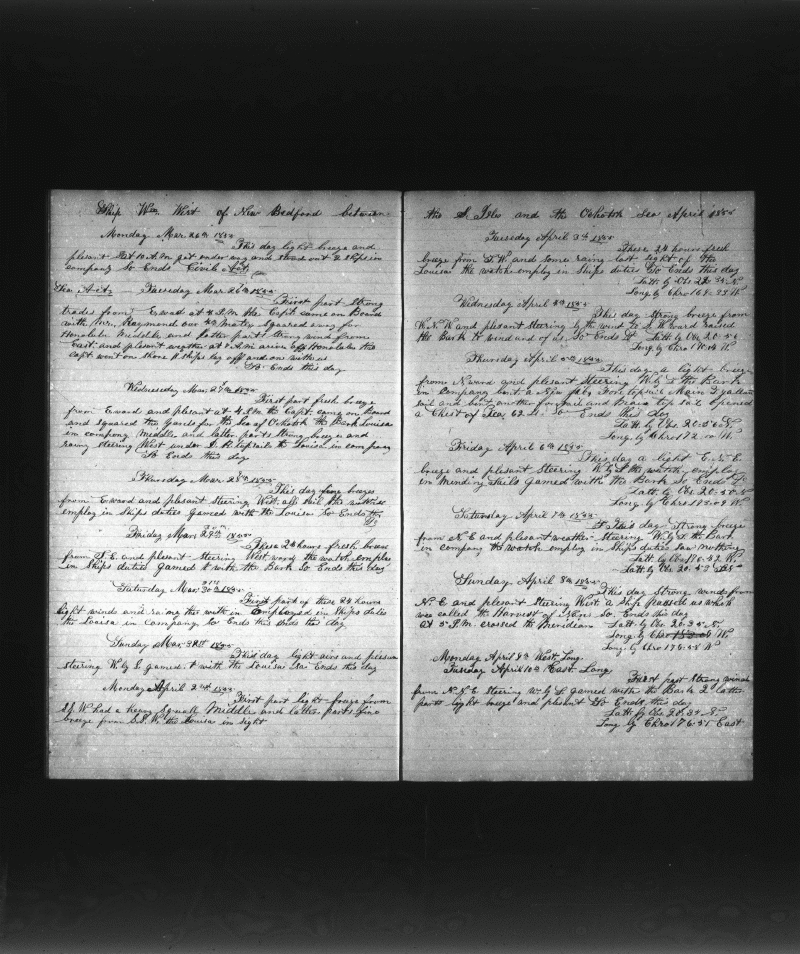 Ship Wm. Wirt of New Bedford between
Monday Mar 26th 1855
This day light breeze and
plesant At 10 A.M. got under way and stood out 2 ships in
company So Ends Civil Act
Sea Act Tuesday Mar 26th 1855
First part strong
trades from Eward at 4 P.M. the Capt. came on Board
with Mr. Raymond our Mate squared away for
Honolulu Middle and latter part strong wind from
East and plesant weather at A.M. arive off Honolulu the
capt went on shore ships lay off and on with us
So Ends this day
Wednesday Mar 27th 1855
First part fresh breeze
from Eward and plesant at 4 P.M. the Capt. came on Board
and squared the yards for the Sea of Ochotsk the Bark Louisa
in company Middle and latter parts strong breeze and
rainy steering West under to Louisa in company
So Ends this day
Thursday Mar. 28th 1855
This day fine breeze
from Eward and plesant Steering West all sail the watches
employ in Ships duties gamed with the Louisa So Ends the
Friday Mar 29th 1855
These 24 hours fresh breeze
from S.E. and plesant Steering West the watch employ
in Ships duties gamed with the Bark So Ends this day
Saturday Mar 30th 1855
First part of these 24 hours
light winds and rainy the watch Employed in Ships duties
the Louisa in company So Ends this day
Sunday Mar 31st 1855
This day light airs and plesant
steering W by S. gamed with the Louisa So Ends this day
Monday April 2nd 1855
First part light breeze from
S.S.W. had a heavy Squall Middle and latter parts fine
breeze from S.S.W. the Louisa in Sight
the S. Isles and the Ochotsk Sea April 1855
Tuesday April 3th 1855
These 24 hours fresh
breeze from S.W. and some rain lost sight of the
Louisa the watch employ in Ships duties So Ends this day
Latt. by Obs 22.34 N.
Long by Chro 164.33 W
Wednesday April 4th 1855
This day Strong breeze from
W.N.W and plesant steering by the wind to S.W.ward raised
the Bark to windward of us So Ends Latt by Obs 20.56
Long. by Chro W
Thursday April 5th 1855
This day a light breeze
from N.ward and plesant Steering W by S the Bark
in company bent a new Jib, Fore topsail Main T gallan
sail and bent another fore sail and topsail opened
a Chest of Tea So Ends this day
Latt by Obs 20.56 N.
Long. by Chro 172.10 W.
Friday April 6th 1855
This day a light E.N.E.
breeze and plesant steering W by S the watch employ
in Mending Sails gamed with the Bark So Ends
Latt by Obs 20.50 N
Long. by Chro 173.09 W.
Saturday April 7th 1855
This day Strong breeze
from N.E and plesant weather Steering W by S the Bark
in company the watch employ in Ships duties saw nothing
Long by Chro 176.52 W.
Latt. by Obs 20.53
Sunday. April 8th 1855
This day strong winds from
N.E and plesant Steering West a Ship passed us which
was called the Harvest of So Ends this day
at 5 P.M. crossed the Meridian Latt by Obs 20.34 N.
Long by Chro W
Long. by Chro 178.58 W
Monday April 9th West Long.
Tuesday April 10th East Long
First part strong winds
from N.N.E Steering W by S gamed with the Bark latter
parts light breeze and plesant So Ends this day
Latt. by Obs 20.34 N.
Long by Chro 176.51 East